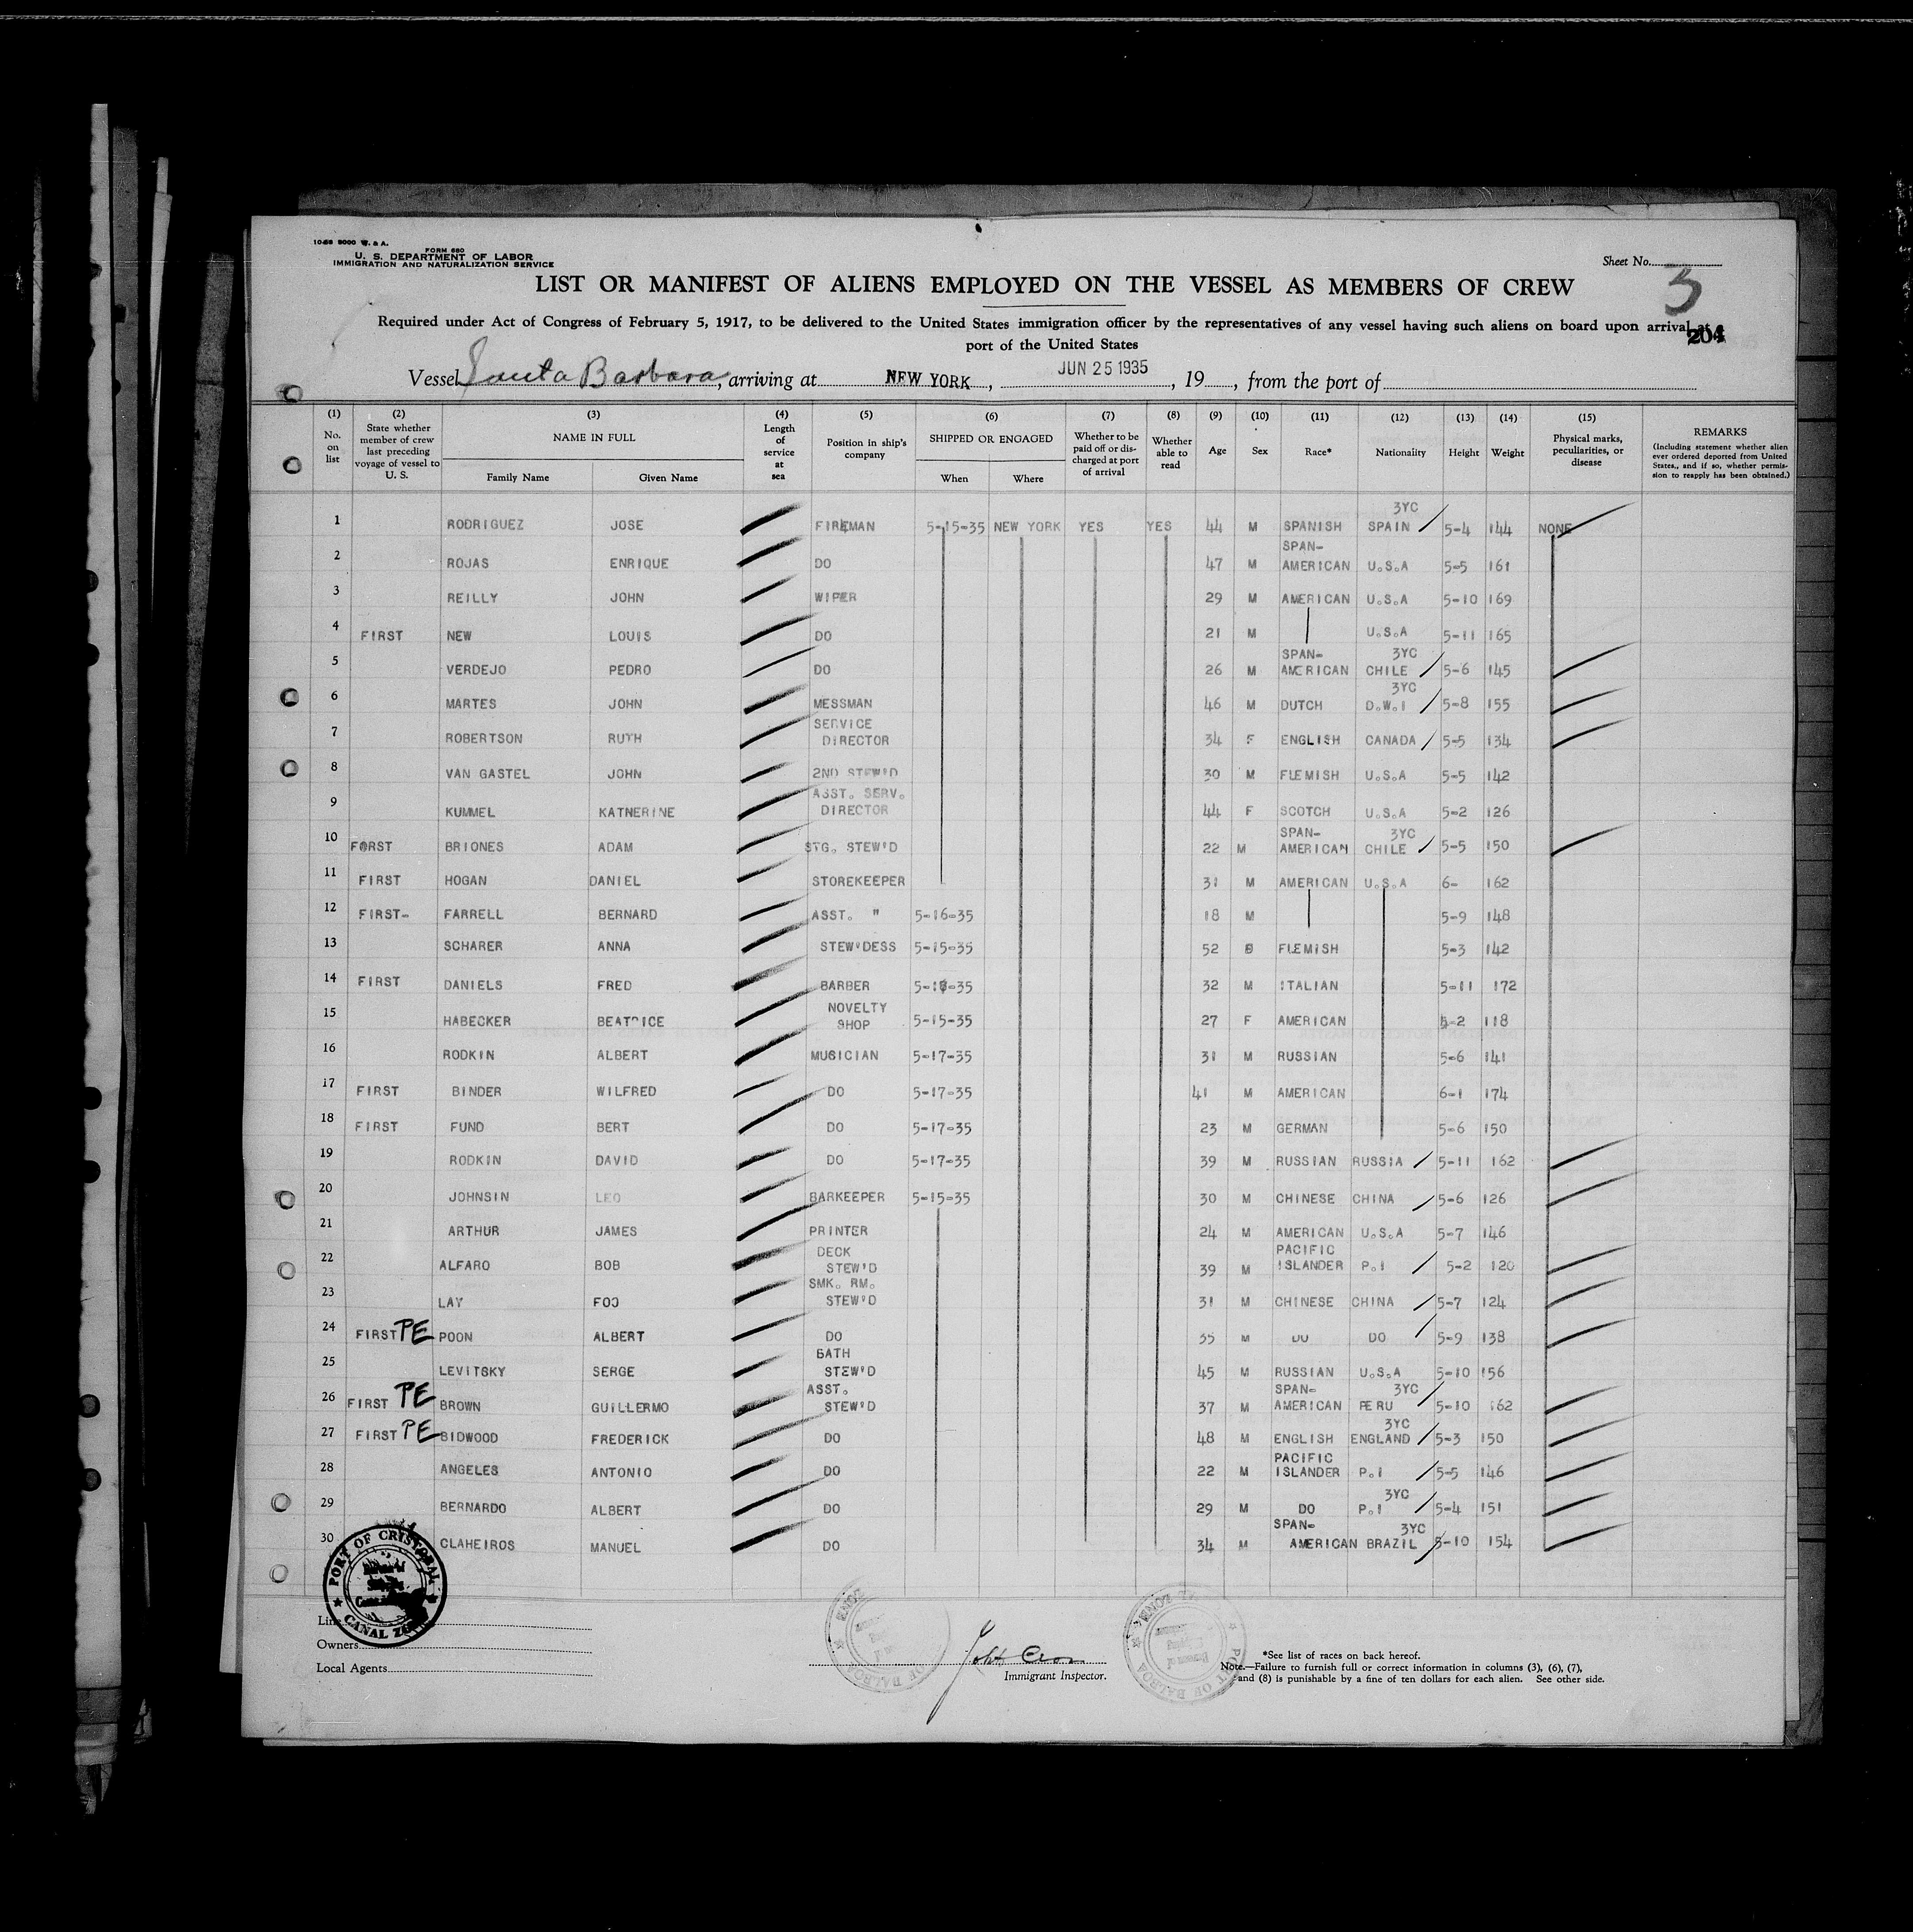 10-33 5000 W. & A.
FORM 680
U. S. DEPARTMENT OF LABOR
IMMIGRATION AND NATURALIZATION SERVICE
Sheet No. 3
LIST OR MANIFEST OF ALIENS EMPLOYED ON THE VESSEL AS MEMBERS OF CREW
Required under Act of Congress of February 5, 1917, to be delivered to the United States immigration officer by the representatives of any vessel having such aliens on board upon arrival at a
204
port of the United States
Vessel Santa Barbara, arriving at NEW YORK, JUN 25 1935, 19, from the port of
(1) No. on list (2) State whether member of crew last preceding voyage of vessel to U. S. (3) NAME IN FULL Family Name Given Name (4) Length of service at sea (5) Position in ship's company (6) SHIPPED OR ENGAGED When Where (7) Whether to be paid off or discharged at port of arrival (8) Whether able to read (9) Age (10) Sex (11) Race* (12) Nationality (13) Height (14) Weight (15) Physical marks, peculiarities, or disease REMARKS (Including statement whether alien ever ordered deported from United States., and if so, whether permission to reapply has been obtained.)
1 RODRIGUEZ JOSE FIREMAN 5-15-35 NEW YORK YES YES 44 M SPANISH 3YC SPAIN 5-4 144 NONE
2 ROJAS ENRIQUE DO 47 M SPAN-AMERICAN U.S.A 5-5 161
3 REILLY JOHN WIPER 29 M AMERICAN U.S.A 5-10 169
4 FIRST NEW LOUIS DO 21 M U.S.A 5-11 165
5 VERDEJO PEDRO DO 26 M SPAN-AMERICAN 3YC CHILE 5-6 145
6 MARTES JOHN MESSMAN 46 M DUTCH 3YC D.W.I 5-8 155
7 ROBERTSON RUTH SERVICE DIRECTOR 34 F ENGLISH CANADA 5-5 134
8 VAN GASTEL JOHN 2ND STEW'D 30 M FLEMISH U.S.A 5-5 142
9 KUMMEL KATNERINE ASST. SERV. DIRECTOR 44 F SCOTCH U.S.A 5-2 126
10 FORST BRIONES ADAM STG. STEW'D 22 M SPAN-AMERICAN 3YC CHILE 5-5 150
11 FIRST HOGAN DANIEL STOREKEEPER 31 M AMERICAN U.S.A 6- 162
12 FIRST- FARRELL BERNARD ASST. " 5-16-35 18 M 5-9 148
13 SCHARER ANNA STEW'DESS 5-15-35 52 FLEMISH 5-3 142
14 FIRST DANIELS FRED BARBER 32 M ITALIAN 5-11 172
15 HABECKER BEATRICE NOVELTY SHOP 5-15-35 27 F AMERICAN 5-2 118
16 RODKIN ALBERT MUSICIAN 5-17-35 31 M RUSSIAN 5-6 141
17 FIRST BINDER WILFRED DO 5-17-35 41 M AMERICAN 6-1 174
18 FIRST FUND BERT DO 5-17-35 23 M GERMAN 5-6 150
19 RODKIN DAVID DO 5-17-35 39 M RUSSIAN RUSSIA 5-11 162
20 JOHNSIN LEO BARKEEPER 5-15-35 30 M CHINESE CHINA 5-6 126
21 ARTHUR JAMES PRINTER 24 M AMERICAN U.S.A 5-7 146
22 ALFARO BOB DECK STEW'D 39 M PACIFIC ISLANDER P.I 5-2 120
23 LAY FOO SMK. RM. STEW'D 31 M CHINESE CHINA 5-7 124
24 FIRST PE POON ALBERT DO 35 M DO DO 5-9 138
25 LEVITSKY SERGE BATH STEW'D 45 M RUSSIAN U.S.A 5-10 156
26 FIRST PE BROWN GUILLERMO ASST. STEW'D 37 M SPAN-AMERICAN 3YC PERU 5-10 162
27 FIRST PE BIDWOOD FREDERICK DO 48 M ENGLISH 3YC ENGLAND 5-3 150
28 ANGELES ANTONIO DO 22 M PACIFIC ISLANDER P.I 5-5 146
29 BERNARDO ALBERT DO 29 M DO 3YC P.I 5-4 151
30 CLAHEIROS MANUEL DO 34 M SPAN-AMERICAN 3YC BRAZIL 5-10 154
PORT OF CRISTOBAL
CANAL ZONE
Line
Owners
Local Agents
PORT OF BALBOA
Immigrant Inspector.
*See list of races on back hereof.
Note.—Failure to furnish full or correct information in columns (3), (6), (7),
and (8) is punishable by a fine of ten dollars for each alien. See other side.